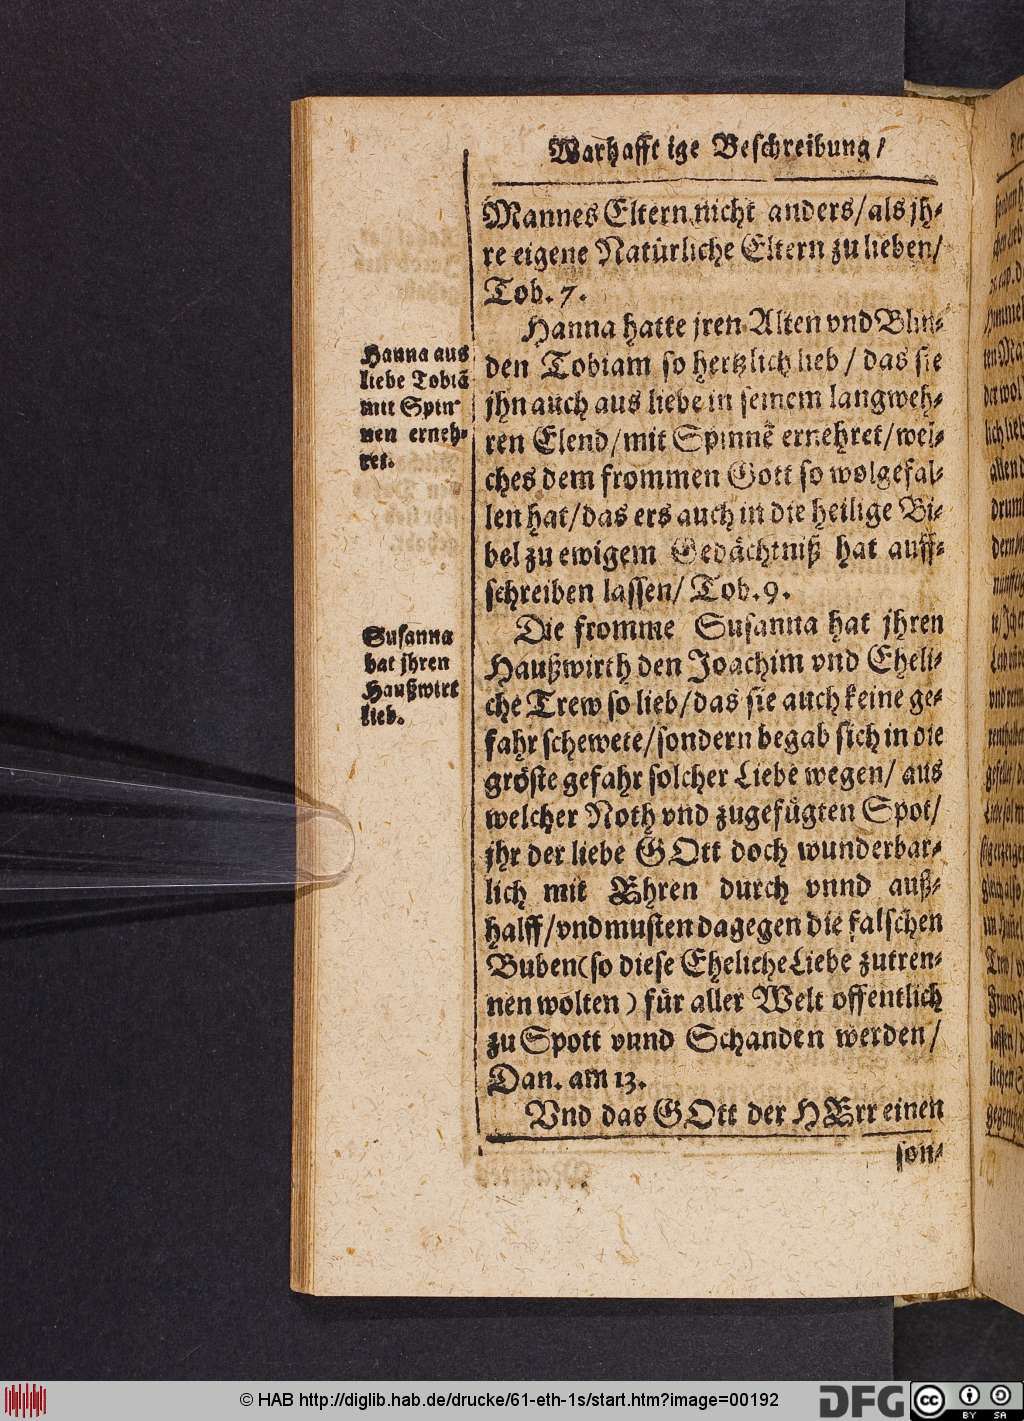 Warhafftige Beschreibung/
Mannes Eltern nicht anders/als jh-
re eigene Natürliche Eltern zu lieben/
Tob. 7.
Hanna hatte jren Alten vnd Blin-
den Tobiam so hertzlich lieb / das sie
jhn auch aus liebe in seinem langweh-
ren Elend/mit Spinnē ernehret/wel-
ches dem frommen Gott so wolgefal-
len hat/das ers auch in die heilige Bi-
bel zu ewigem Gedächtniß hat auff-
schreiben lassen/ Tob. 9.
Die fromme Susanna hat jhren
Haußwirth den Joachim vnd Eheli-
che Trew so lieb/das sie auch keine ge-
fahr schewete/sondern begab sich in die
gröste gefahr solcher Liebe wegen/ aus
welcher Noth vnd zugefügten Spot/
jhr der liebe GOtt doch wunderbar-
lich mit Ehren durch vnnd auß-
halff/vnd musten dagegen die falschen
Buben(so diese Eheliche Liebe zutren-
nen wolten) für aller Welt offentlich
zu Spott vnnd Schanden werden/
Dan. am 13.
Vnd das GOtt der HErr einen
son-
Hanna aus
liebe Tobiā
mit Spin-
nen erneh-
ret.
Susanna
hat jhren
Haußwirt
lieb.
© HAB http://diglib.hab.de/drucke/61-eth-1s/start.htm?image=00192
DFG
cc
BY SA